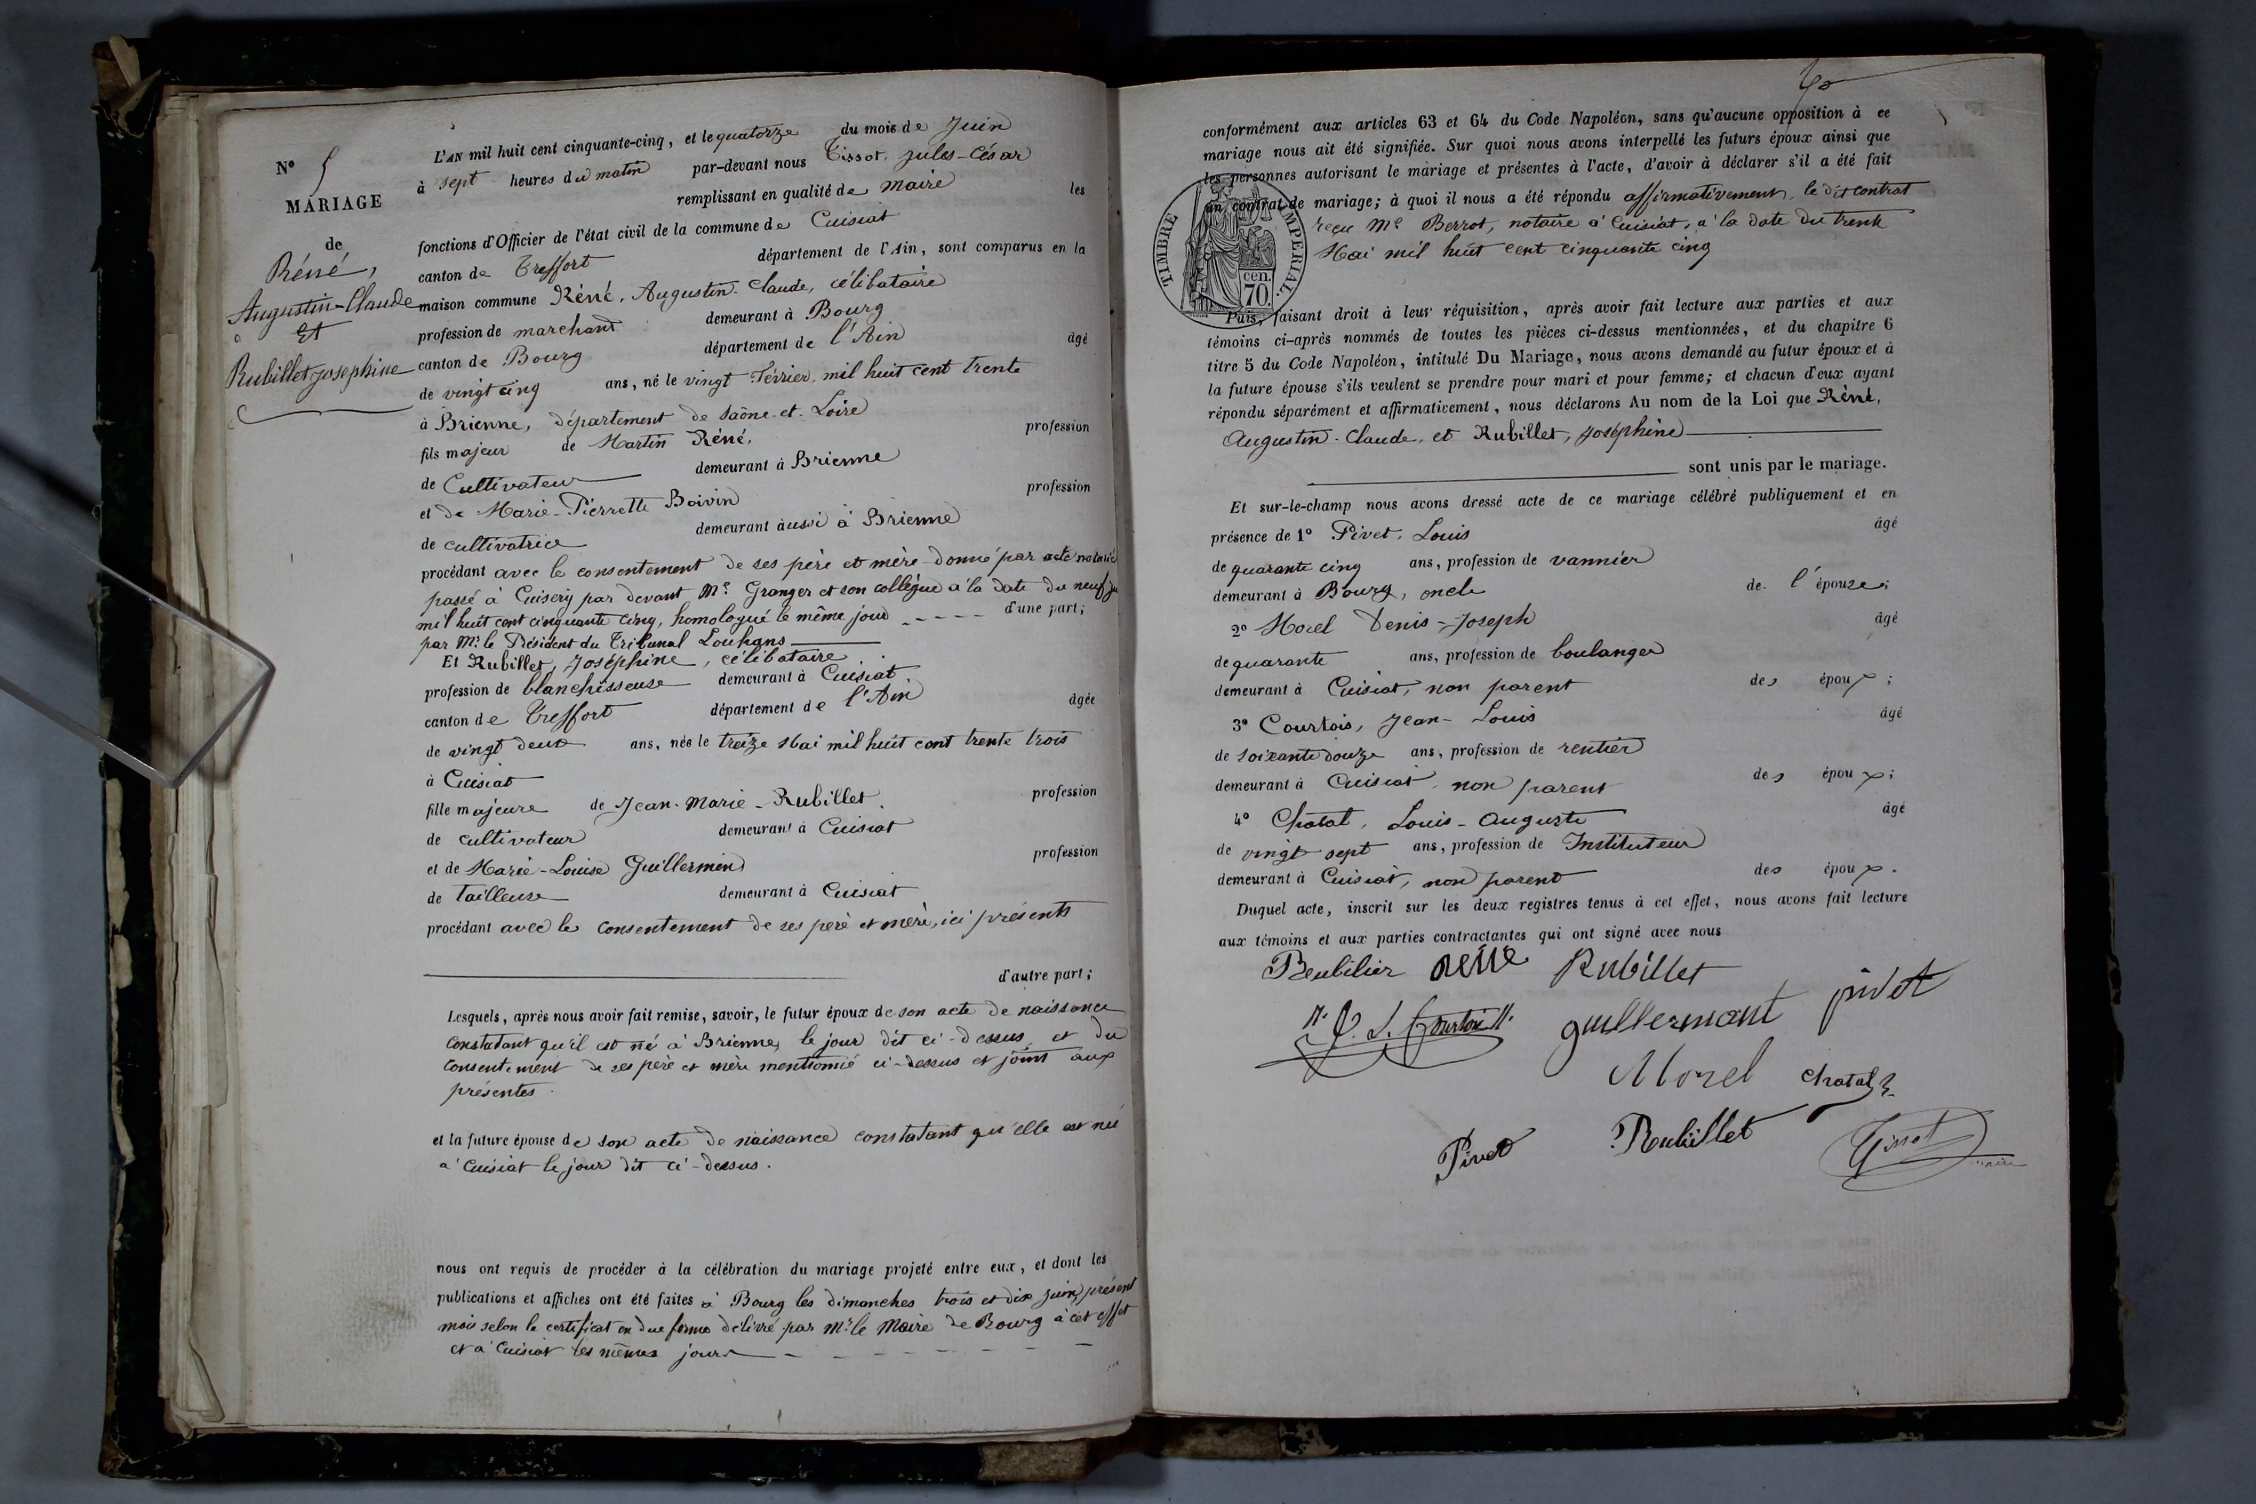 N° 5
MARIAGE
de
Réné,
Augustin-Claude
Et
Rubillet Joséphine
L'AN mil huit cent cinquante-cinq, et le quatorze du mois de Juin
à sept heures du matin par-devant nous Tissot, Jules-César
remplissant en qualité de Maire les
fonctions d'Officier de l'état civil de la commune de Cuisiat
canton de Treffort département de l'Ain, sont comparus en la
maison commune Réné, Augustin-Claude, célibataire
profession de marchand demeurant à Bourg
canton de Bourg département de l'Ain âgé
de vingt cinq ans, né le vingt Février mil huit cent trente
à Brienne, département de Saône-et-Loire
fils majeur de Martin Réné, profession
de Cultivateur demeurant à Brienne
et de Marie-Pierrette Boivin profession
de cultivatrice demeurant aussi à Brienne
procédant avec le consentement de ses père et mère donné par acte notarié
passé à Cuisery par devant Me Granger et son collègue à la date du neuf
mil huit cent cinquante cinq, homologué le même jour d'une part;
par Mr le Président du Tribunal Louhans
Et Rubillet, Joséphine, célibataire
profession de blanchisseuse demeurant à Cuisiat
canton de Treffort département de l'Ain âgée
de vingt deux ans, née le treize Mai mil huit cent trente trois
à Cuisiat
fille majeure de Jean-Marie-Rubillet, profession
de cultivateur demeurant à Cuisiat
et de Marie-Louise Guillermin profession
de Tailleuse demeurant à Cuisiat
procédant avec le consentement de ses père et mère, ici présents
d'autre part;
Lesquels, après nous avoir fait remise, savoir, le futur époux de son acte de naissance
constatant qu'il est né à Brienne, le jour dit ci-dessus et du
consentement de ses père et mère mentionné ci-dessus et joint aux
présentes.
et la future épouse de son acte de naissance constatant qu'elle est née
à Cuisiat le jour dit ci-dessus.
nous ont requis de procéder à la célébration du mariage projeté entre eux, et dont les
publications et affiches ont été faites à Bourg les dimanches trois et dix juin, présent
mois selon le certificat en due forme délivré par Mr le Maire de Bourg à cet effet
et à Cuisiat les mêmes jours
conformément aux articles 63 et 64 du Code Napoléon, sans qu'aucune opposition à ce
mariage nous ait été signifiée. Sur quoi nous avons interpellé les futurs époux ainsi que
les personnes autorisant le mariage et présentes à l'acte, d'avoir à déclarer s'il a été fait
un contrat de mariage; à quoi il nous a été répondu affirmativement, le dit contrat
reçu Me Berrot, notaire à Cuisiat, à la date du trente
Mai mil huit cent cinquante cinq
TIMBRE IMPERIAL
cen.
70.
Puis, faisant droit à leur réquisition, après avoir fait lecture aux parties et aux
témoins ci-après nommés de toutes les pièces ci-dessus mentionnées, et du chapitre 6
titre 5 du Code Napoléon, intitulé Du Mariage, nous avons demandé au futur époux et à
la future épouse s'ils veulent se prendre pour mari et pour femme; et chacun d'eux ayant
répondu séparément et affirmativement, nous déclarons Au nom de la Loi que Réné,
Augustin-Claude, et Rubillet, Joséphine
sont unis par le mariage.
Et sur-le-champ nous avons dressé acte de ce mariage célébré publiquement et en
présence de 1° Pivet, Louis âgé
de quarante cinq ans, profession de vannier
demeurant à Bourg, oncle de l'épouse;
2° Morel Denis-Joseph âgé
de quarante ans, profession de boulanger
demeurant à Cuisiat, non parent des époux;
3° Courtois, Jean-Louis âgé
de soixante douze ans, profession de rentier
demeurant à Cuisiat, non parent des époux;
4° Chatat, Louis-Auguste âgé
de vingt sept ans, profession de Instituteur
demeurant à Cuisiat, non parent des époux.
Duquel acte, inscrit sur les deux registres tenus à cet effet, nous avons fait lecture
aux témoins et aux parties contractantes qui ont signé avec nous
Reubilier Réné Rubillet
J. L. Courtois guillermont pivet
Morel Chatat
Pivet Reubillet Tissot
maire